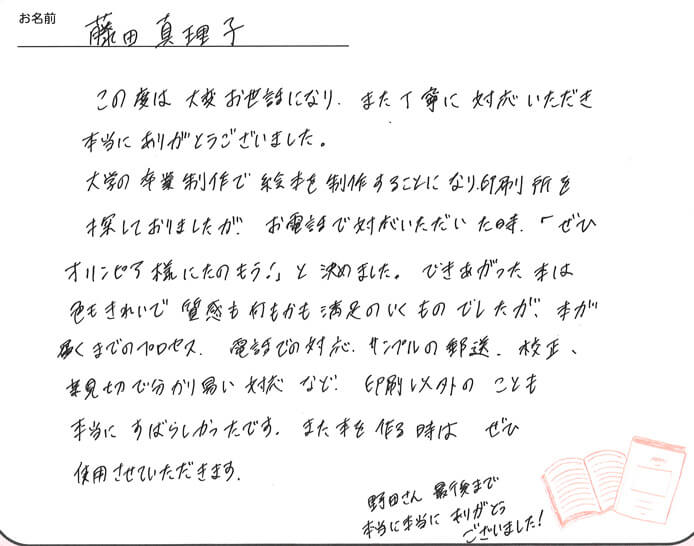 お名前
藤田真理子
この度は大変お世話になり、また丁寧に対応いただき
本当にありがとうございました。
大学の卒業制作で絵本を制作することになり、印刷所を
探しておりましたが、お電話で対応いただいた時、「ぜひ
オリンピア様にたのもう!」と決めました。できあがった本は
色もきれいで質感も何もかも満足のいくものでしたが、本が
届くまでのプロセス、電話での対応、サンプルの郵送、校正、
親切で分かり易い対応など、印刷以外のことも
本当にすばらしかったです。また本を作る時はぜひ
使用させていただきます。
野田さん最後まで
本当に本当にありがとう
ございました!